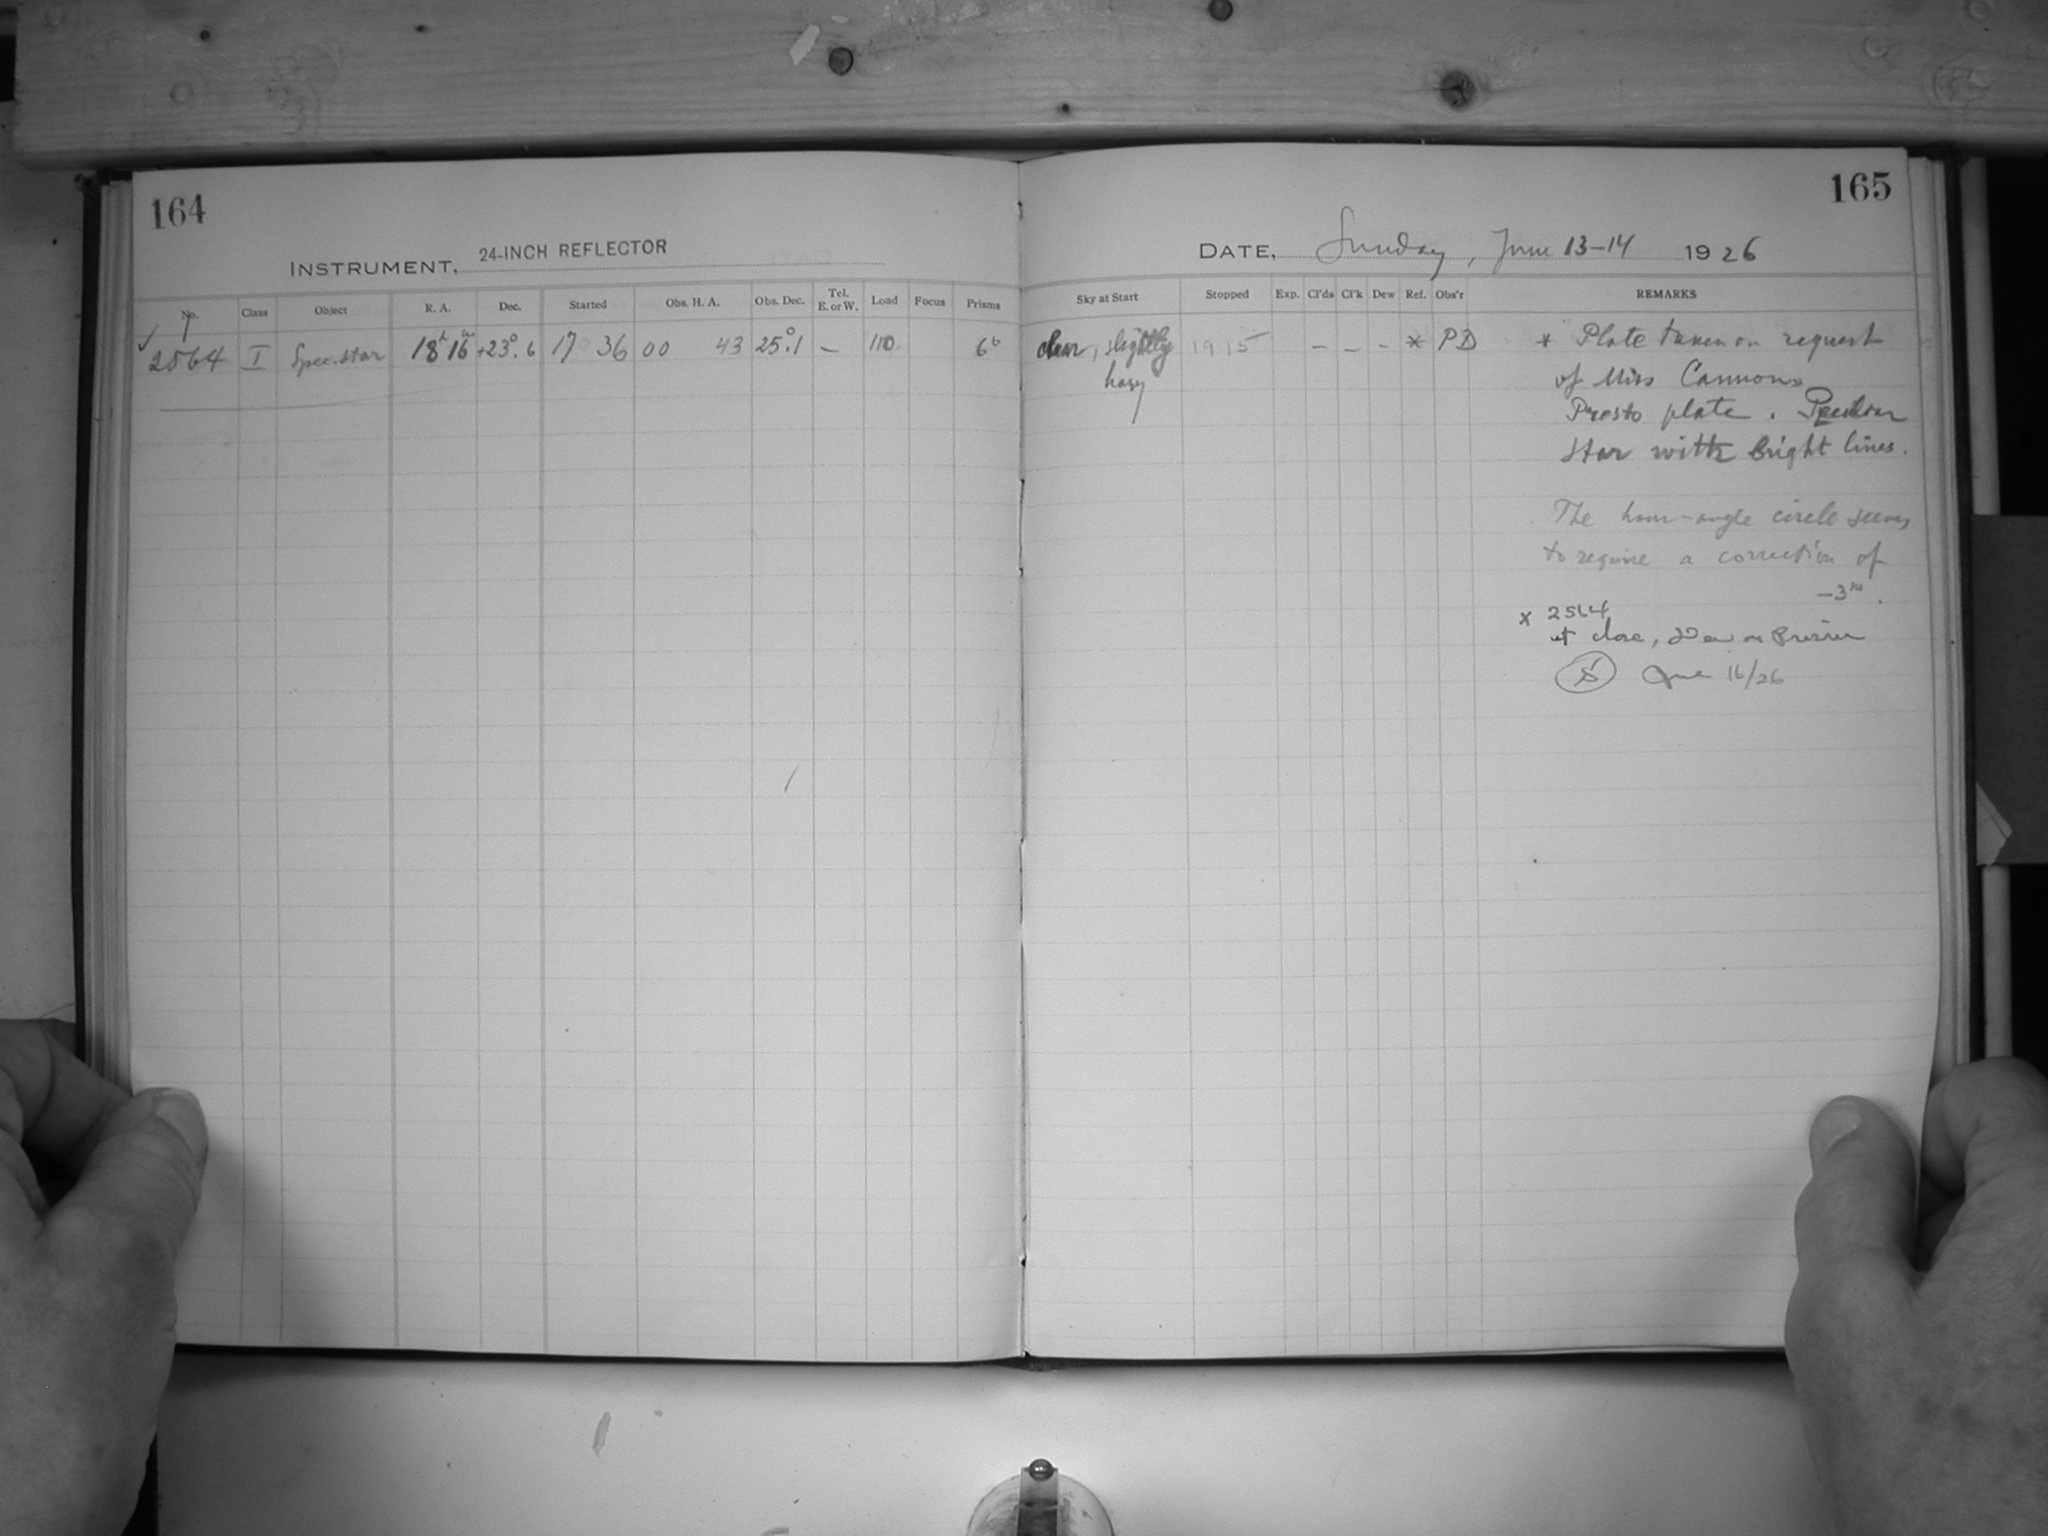 164
INSTRUMENT, 24-INCH REFLECTOR
No. Class Object R. A. Dec. Started Obs. H. A. Obs. Dec. Tel. E. or W. Load Focus Prisms
✓ 2564 I Spec. star 18h 16m +23°.6 17 36 00 43 25°.1 – 110 6"
165
DATE, Sunday, June 13-14 1926
Sky at Start Stopped Exp. Cl'ds Cl'k Dew Ref. Obs'r REMARKS
clear, slightly 19 15 – – – * PD * Plate taken on request
hazy of Miss Cannon.
Presto plate. Peculiar
star with bright lines.
The hour-angle circle seems
to require a correction of
–3m.
x 2564
at close, Dew on Prism
June 16/26